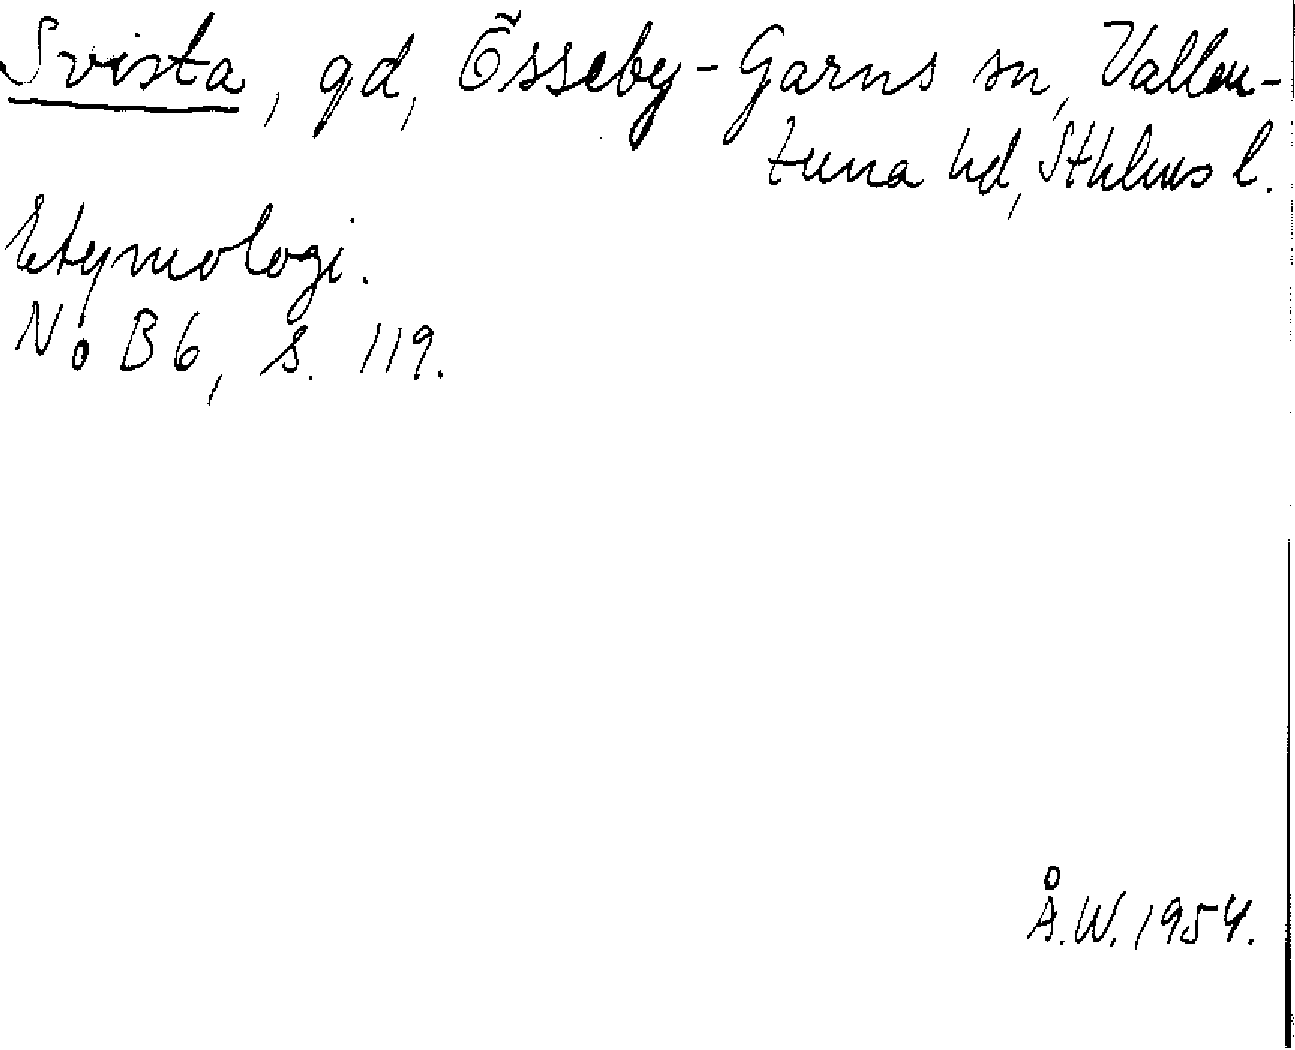 Svista, gd, Össeby-Garns sn, Vallen-
tuna hd, Sthlms l.
Etymologi.
NoB 6, s. 119.
Å.W. 1954.